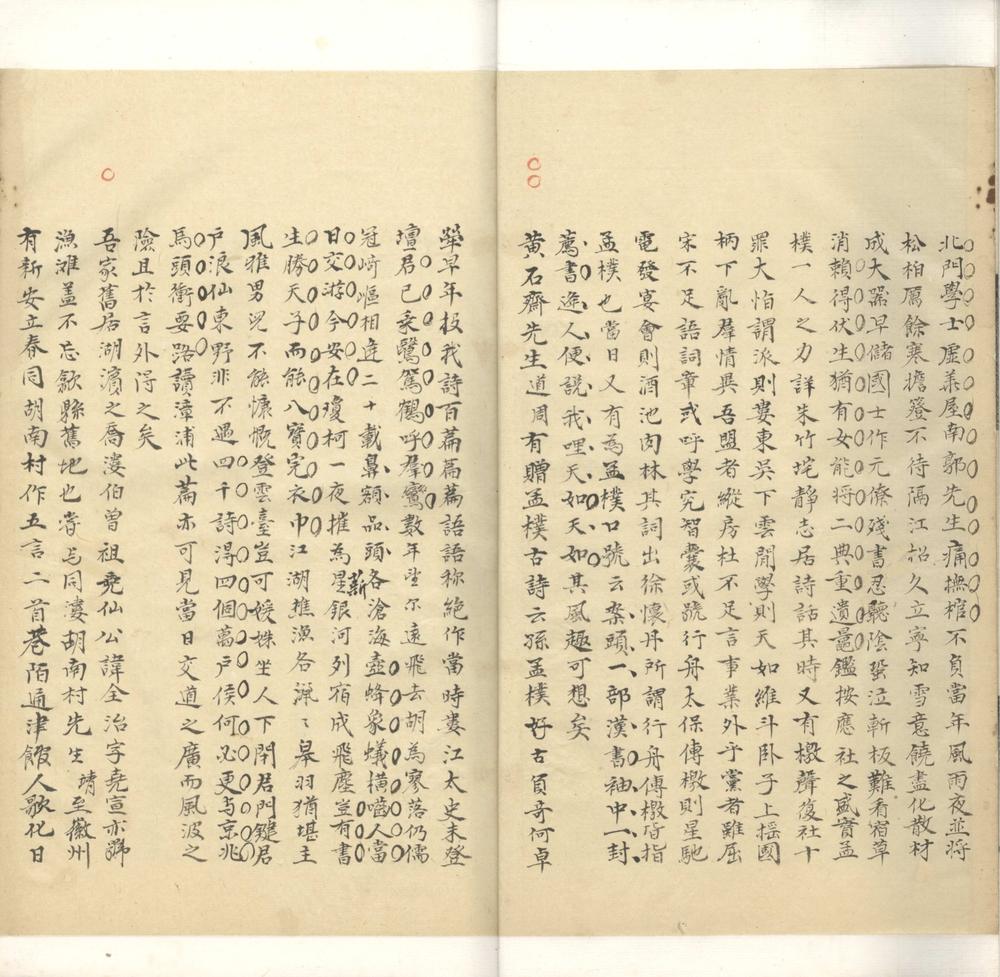 北門學士虛茅屋南郭先生痛撫棺不負當年風雨夜並將
松柏厲餘寒擔簦不待隔江招久立寧知雪意饒盡化散材
成大器早儲國士作元僚殘書忍聽陰蛩泣斬板難看宿草
消賴得伏生猶有女能將二典重遺鼂鑑按應社之盛實孟
樸一人之力詳朱竹垞靜志居詩話其時又有檄聲復社十
罪大怕謂派則婁東吳下雲間學則天如維斗臥子上搖國
柄下亂羣情異吾盟者縱房杜不足言事業外乎黨者雖屈
宋不足語詞章或呼學究智囊或號行舟太保傳檄則星馳
電發宴會則酒池肉林其詞出徐懷丹所謂行舟傳檄皆指
孟樸也當日又有為孟樸口號云案頭一部漢書袖中一封
薦書逢人便說我哩天如天如其風趣可想矣
黃石齋先生道周有贈孟樸古詩云孫孟樸好古負奇何卓
犖早年投我詩百篇篇篇語語稱絕作當時婁江太史未登
壇君已來鷺鴛鶴呼羣鸞數年望尓遠飛去胡為寥落仍儒
冠崎嶇相逢二十載鼻額品頭各滄海壺蜂象蟻橫嚙人當
日交游今安在瓊柯一夜摧為薪星銀河列宿成飛塵豈有書
生勝天子而能八寶完衣巾江湖樵漁各諷諷皋羽猶堪主
風雅男兒不能慷慨登雲臺豈可媛姝坐人下閉君門鍵君
戶浪仙東野非不過四千詩淂四個萬戶侯何必更与京兆
馬頭衝要路讀漳浦此篇亦可見當日交道之廣而風波之
險且於言外得之矣
吾家舊居湖濱之喬漊伯曾祖堯仙公諱全治字堯宣亦號
漁灘蓋不忘歙縣舊地也嘗与同漊胡南村先生靖至徽州
有新安立春同胡南村作五言二首巷陌通津館人歌化日